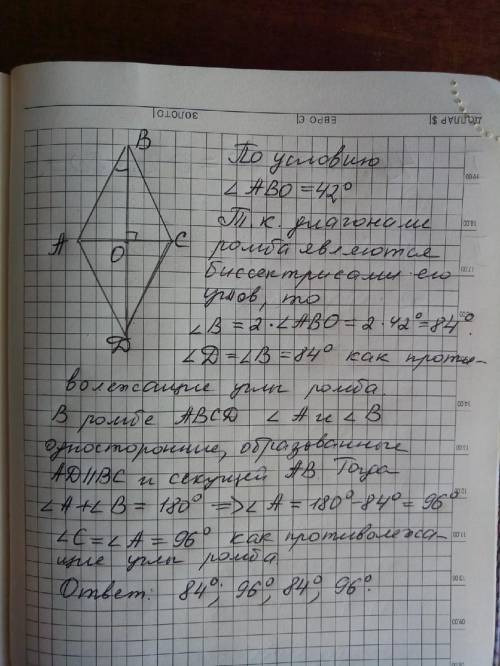 ДОЛЛАР $|
ЕВРО €|
ЗОЛОТО|
B
A
O
C
D
По условию
∠ABO = 42°
Т.к. диагонали
ромба являются
биссектрисами его
углов, то
∠B = 2·∠ABO = 2·42° = 84°.
∠D = ∠B = 84° как проти-
волежащие углы ромба
В ромбе ABCD ∠A и ∠B
односторонние, образованные
AD||BC и секущей AB. Тогда
∠A + ∠B = 180° => ∠A = 180° - 84° = 96°
∠C = ∠A = 96° как противолежа-
щие углы ромба
Ответ: 84°; 96°, 84°, 96°.
19.00
18.00
17.00
14.00
13.00
12.00
11.00
10.00
09.00